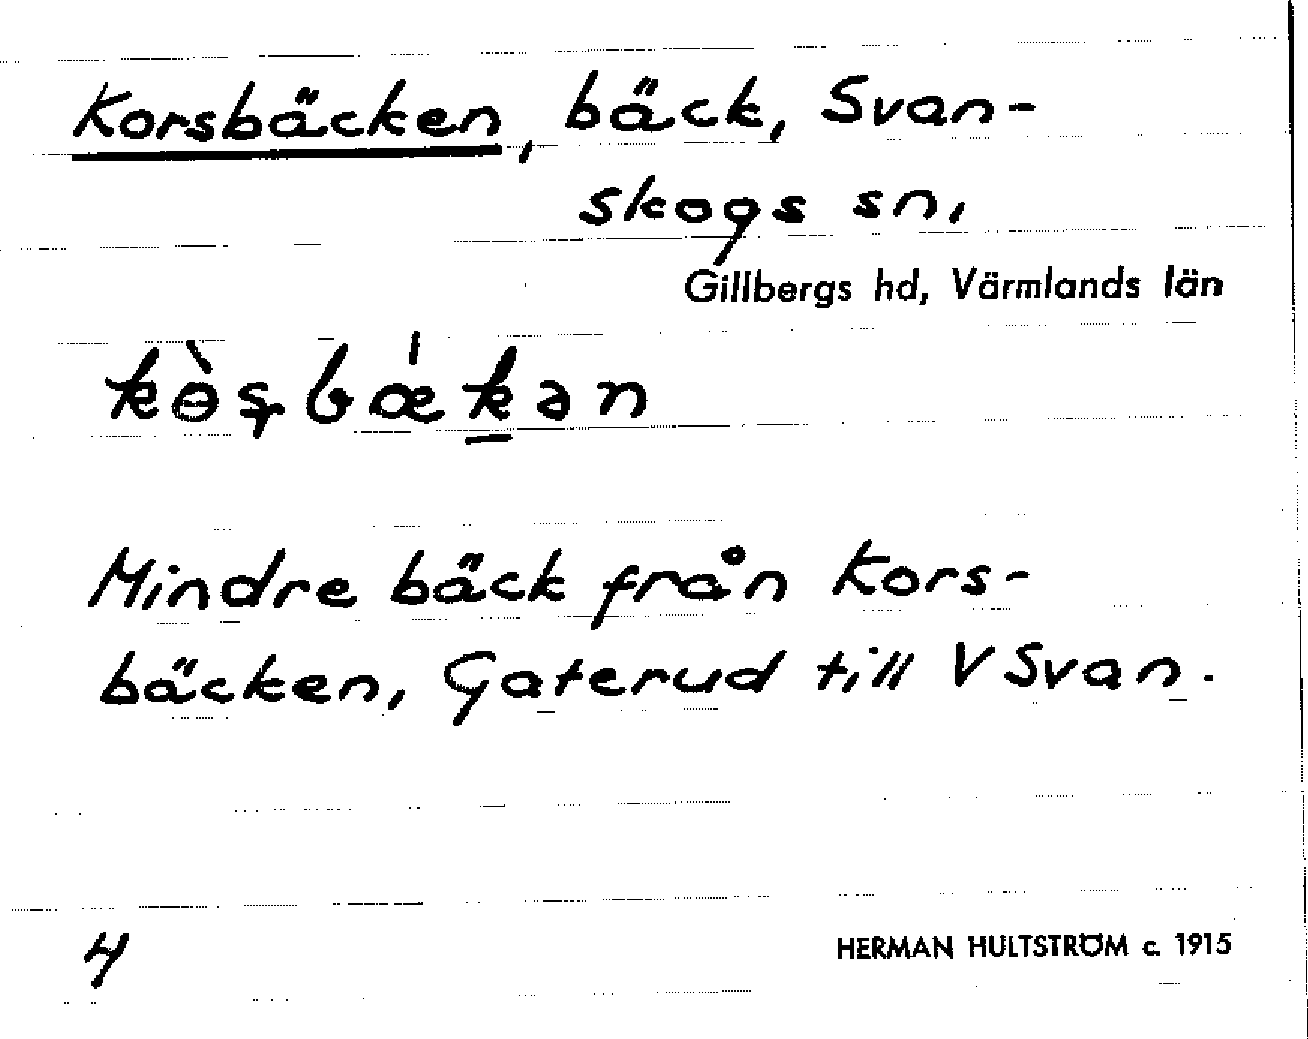 Korsbäcken, bäck, Svan-
skogs sn,
Gillbergs hd, Värmlands län
kɵ̀ʂbǽkən
Mindre bäck från Kors-
bäcken, Gaterud till V Svan.
4
HERMAN HULTSTRÖM c. 1915